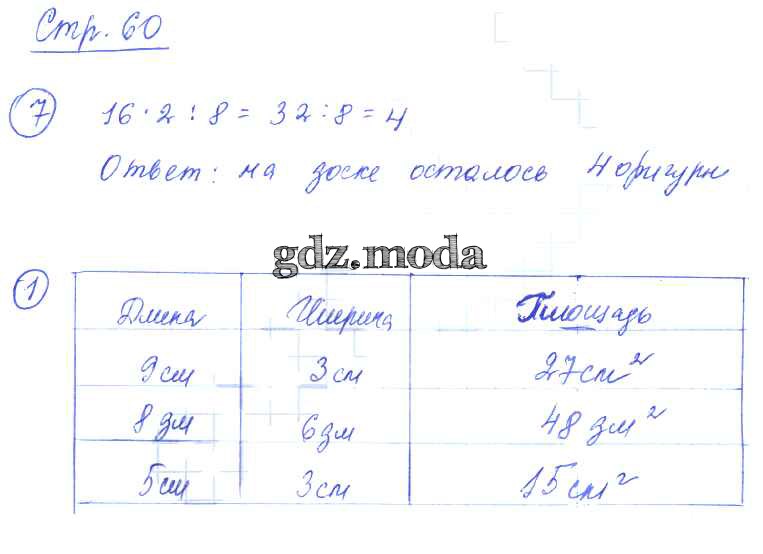 Стр. 60
7 16 · 2 : 8 = 32 : 8 = 4
Ответ: на доске осталось 4 фигуры
gdz.moda
1
Длина Ширина Площадь
9 см 3 см 27 см²
8 дм 6 дм 48 дм²
5 см 3 см 15 см²